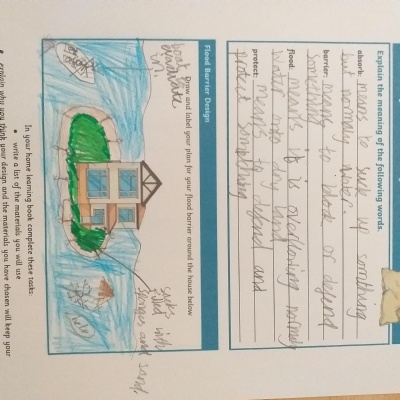 Explain the meaning of the following words.
absorb: means to suck up something
but normaly water.
barrier: means to block or defend
something
flood: means it is overflowing normaly
water into dry land
protect: means to defend and
protect something
Flood Barrier Design
Draw and label your plan for your flood barrier around the house below
boat
in.
sacks
filled with
sponges and sand.
help
In your home learning book complete these tasks:
write a list of the materials you will use
explain why you think your design and the materials you have chosen will keep your